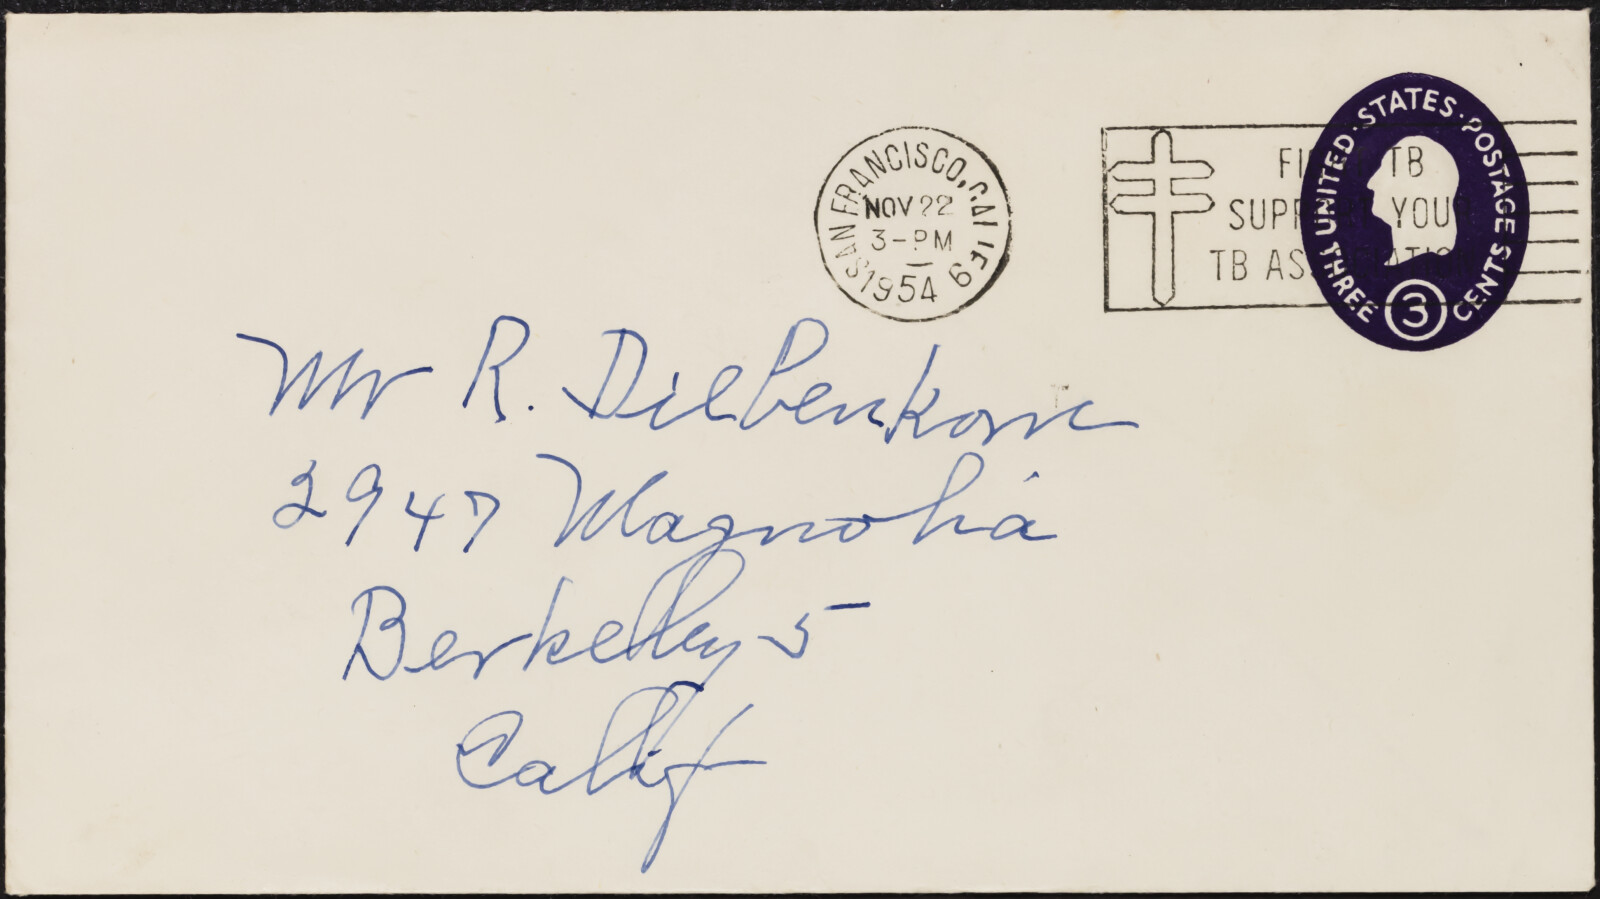 SAN FRANCISCO, CALIF. 9
NOV 22
3-PM
1954
FIGHT TB
SUPPORT YOUR
TB ASSOCIATION
UNITED·STATES·POSTAGE
THREE 3 CENTS
Mr R. Diebenkorn
2947 Magnolia
Berkelley 5
Callif